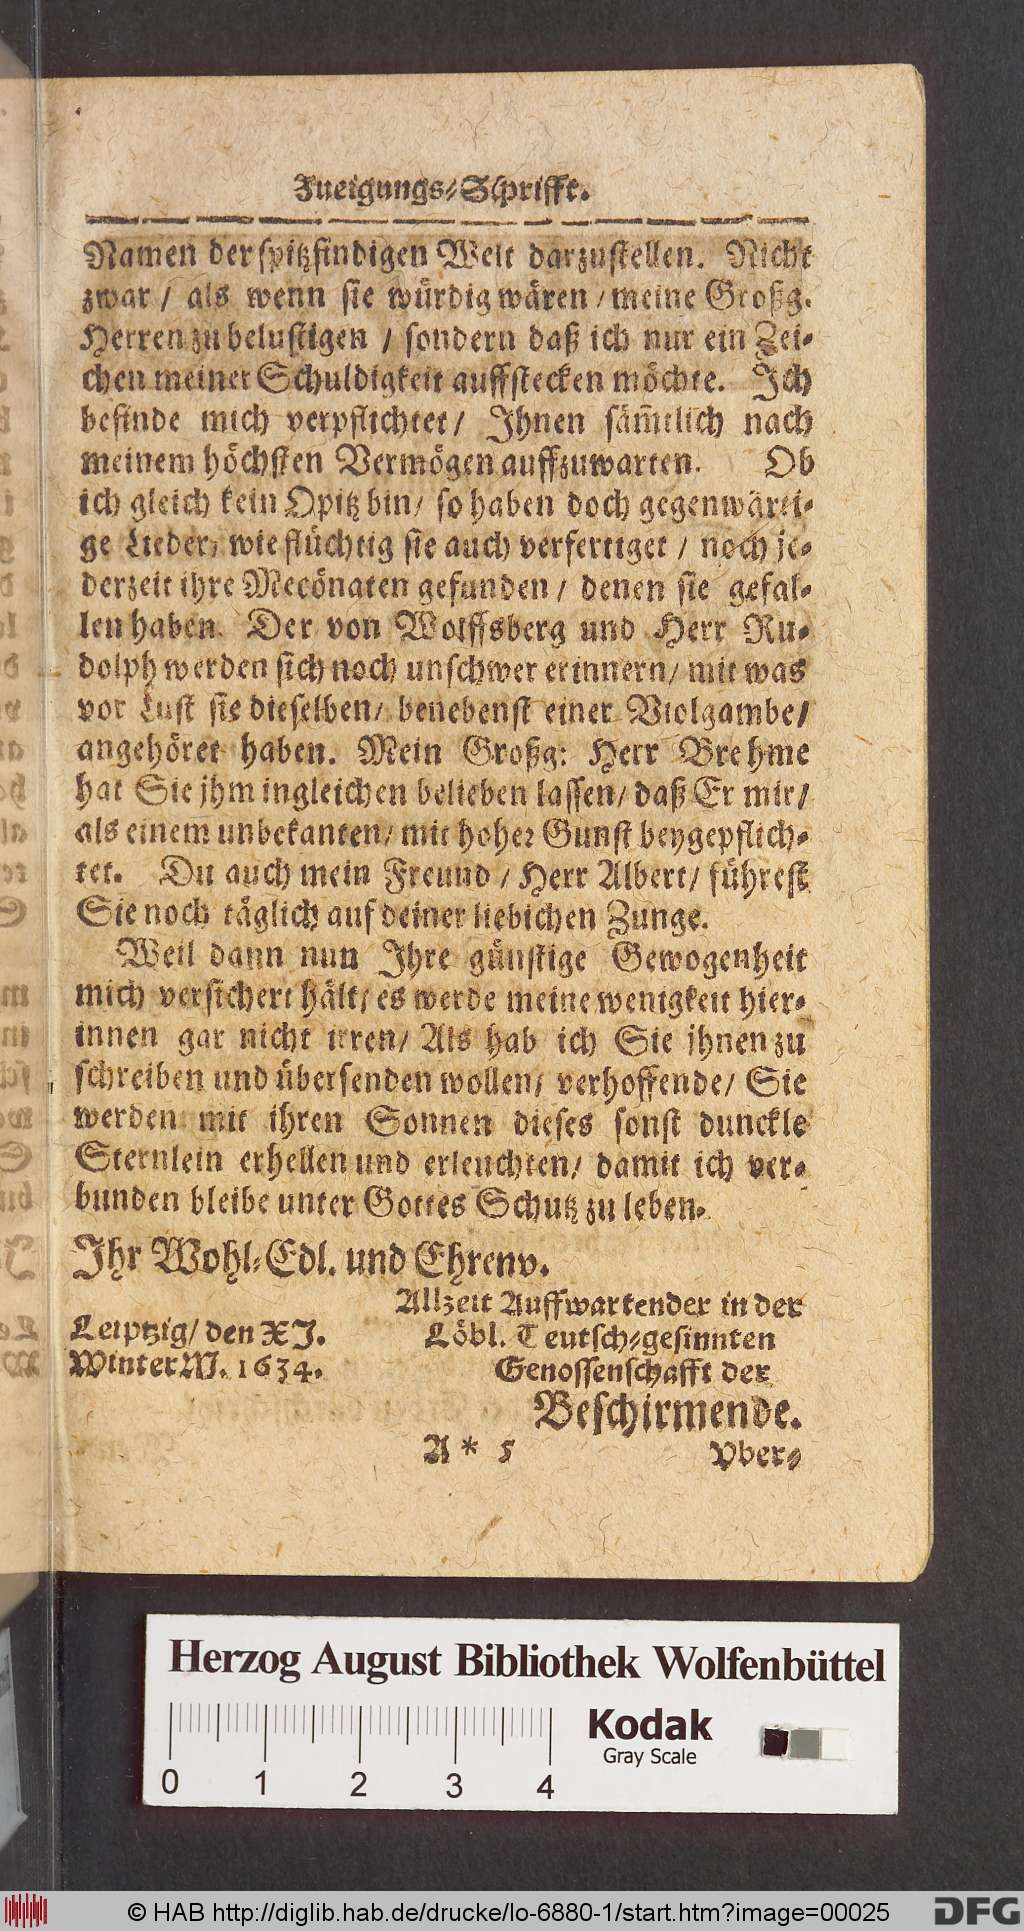 Zueigungs-Schrifft.
Namen der spitzfindigen Welt darzustellen. Nicht
zwar / als wenn sie würdig wären / meine Großg.
Herren zu belustigen / sondern daß ich nur ein Zei-
chen meiner Schuldigkeit auffstecken möchte. Ich
befinde mich verpflichtet / Ihnen säm̃tlich nach
meinem höchsten Vermögen auffzuwarten. Ob
ich gleich kein Opitz bin / so haben doch gegenwärti-
ge Lieder / wie flüchtig sie auch verfertiget / noch je-
derzeit ihre Mecönaten gefunden / denen sie gefal-
len haben. Der von Wolffsberg und Herr Ru-
dolph werden sich noch unschwer erinnern / mit was
vor Lust sie dieselben / benebenst einer Violgambe /
angehöret haben. Mein Großg: Herr Brehme
hat Sie jhm ingleichen belieben lassen / daß Er mir /
als einem unbekanten / mit hoher Gunst beygepflich-
tet. Du auch mein Freund / Herr Albert / führest
Sie noch täglich auf deiner liebichen Zunge.
Weil dann nun Ihre günstige Gewogenheit
mich versichert hält / es werde meine wenigkeit hier-
innen gar nicht irren / Als hab ich Sie ihnen zu
schreiben und übersenden wollen / verhoffende / Sie
werden mit ihren Sonnen dieses sonst dunckle
Sternlein erhellen und erleuchten / damit ich ver-
bunden bleibe unter Gottes Schutz zu leben.
Ihr Wohl-Edl. und Ehrenv.
Allzeit Auffwartender in der
Leiptzig / den XI. Löbl. Teutsch-gesinnten
WinterM. 1634. Genossenschafft der
Beschirmende.
A * 5 Vber-
Herzog August Bibliothek Wolfenbüttel
Kodak
Gray Scale
0 1 2 3 4
© HAB http://diglib.hab.de/drucke/lo-6880-1/start.htm?image=00025
DFG